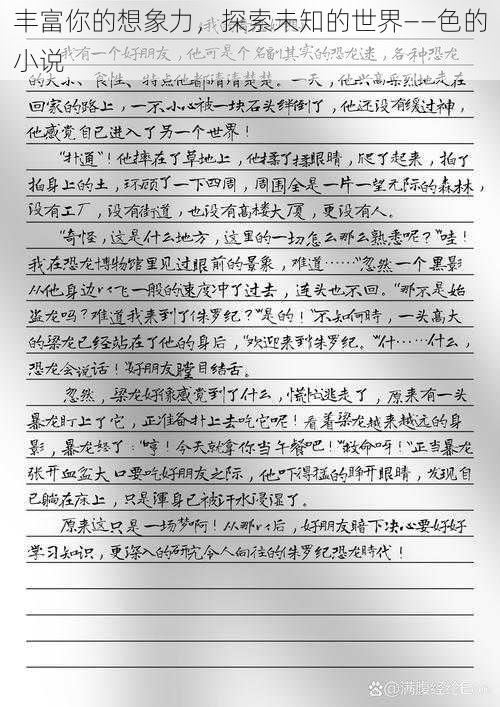 丰富你的想象力，探索未知的世界——色的
小说
我有一个好朋友，他可是个名副其实的恐龙迷，各种恐龙
的大小、食性、特点他都清清楚楚。一天，他兴高采烈地走在
回家的路上，一不小心被一块石头绊倒了，他还没有缓过神，
他感觉自己进入了另一个世界！
“扑通”！他摔在了草地上，他揉了揉眼睛，爬了起来，拍了
拍身上的土，环顾了一下四周，周围全是一片一望无际的森林，
没有工厂，没有街道，也没有高楼大厦，更没有人。
“奇怪，这是什么地方，这里的一切怎么那么熟悉呢？”哇！
我在恐龙博物馆里见过眼前的景象，难道……“忽然一个黑影
从他身边以飞一般的速度冲了过去，连头也不回。“那不是始
盗龙吗？难道我来到了侏罗纪？”“是的！”不知何時，一头高大
的梁龙已经站在了他的身后，“欢迎来到侏罗纪。”“什……什么，
恐龙会说话！”好朋友瞠目结舌。
忽然，梁龙好像感觉到了什么，慌忙逃走了，原来有一头
暴龙盯上了它，正准备扑上去吃它呢！看着梁龙越来越远的身
影，暴龙怒了：“哼！今天就拿你当午餐吧！”“救命呀！”正当暴龙
张开血盆大口要吃好朋友之际，他吓得猛的睁开眼睛，发现自
己躺在床上，只是渾身已被汗水浸湿了。
原来这只是一场梦啊！从那以后，好朋友暗下决心要好好
学习知识，更深入的研究令人向往的侏罗纪恐龙時代！
@满腹经纶